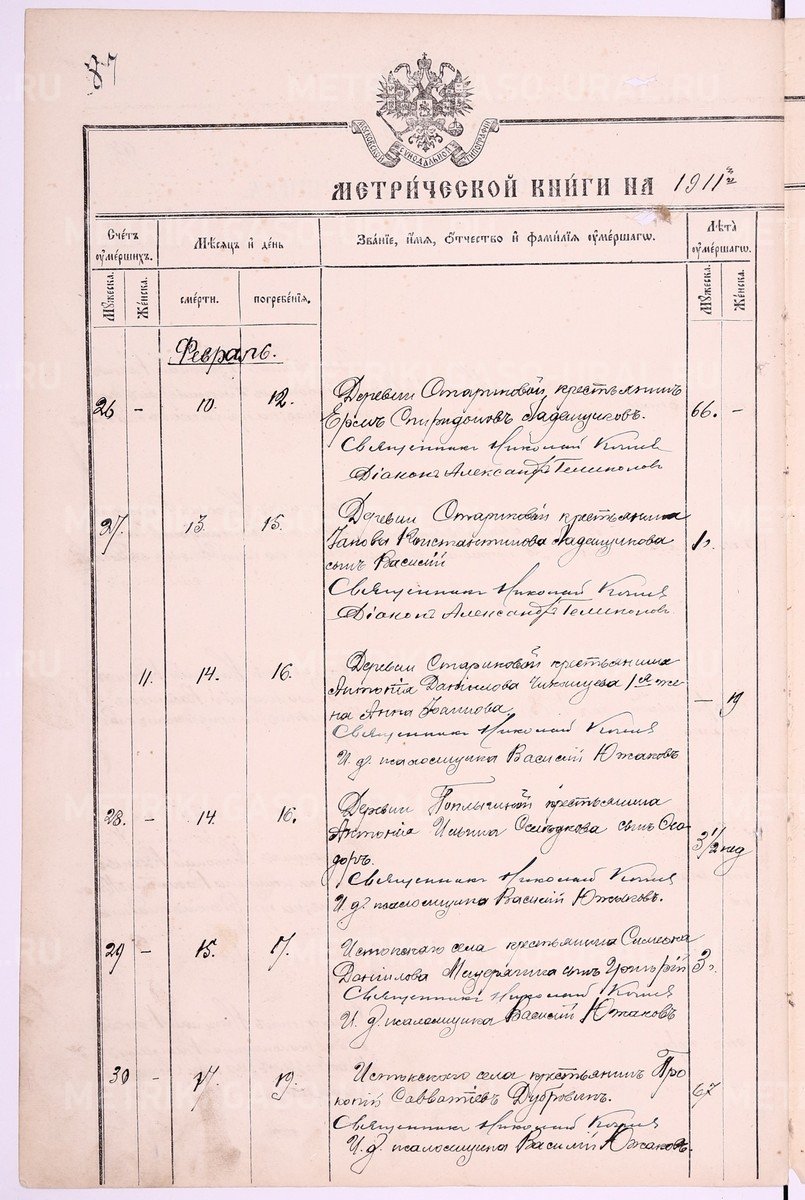 87
МОСКОВСКОЙ СѴНОДАЛЬНОЙ ТИПОГРАФІИ
МЕТРИЧЕСКОЙ КНИГИ НА 1911й
Счетъ умершихъ.
Мѣсяцъ и день
Званіе, имя, отчество и фамилія умершаго.
Лѣта умершаго.
Мужеска.
Женска.
смерти.
погребенія.
Мужеска.
Женска.
Февраль.
26 - 10. 12. Деревни Стариковой крестьянинъ 66. -
Спиридоновъ Ладейщиковъ.
Священникъ Николай
Діаконъ Александръ
27. 13. 15. Деревни Стариковой крестьянина 1г.
Іакова Константинова Ладейщикова
сынъ Василій
Священникъ Николай
Діаконъ Александръ
11. 14. 16. Деревни Стариковой крестьянина — 19
Антонія Даніилова 1й же-
на Анна Іоаннова
Священникъ Николай
И. д. псаломщика Василій Южаковъ
28. - 14. 16. Деревни крестьянина 3 1/2 нед
Антонія Ильина сынъ Ѳео-
доръ.
Священникъ Николай
И. д. псаломщика Василій Южаковъ.
29 - 15. 17. Истокскаго села крестьянина Симеона 3г.
Даніилова сынъ
Священникъ Николай
И. д. псаломщика Василій Южаковъ
30 - 17. 19. Истокскаго села крестьянинъ Про 67
копій Савватіевъ Дубровинъ.
Священникъ Николай
И. д. псаломщика Василій Южаковъ.